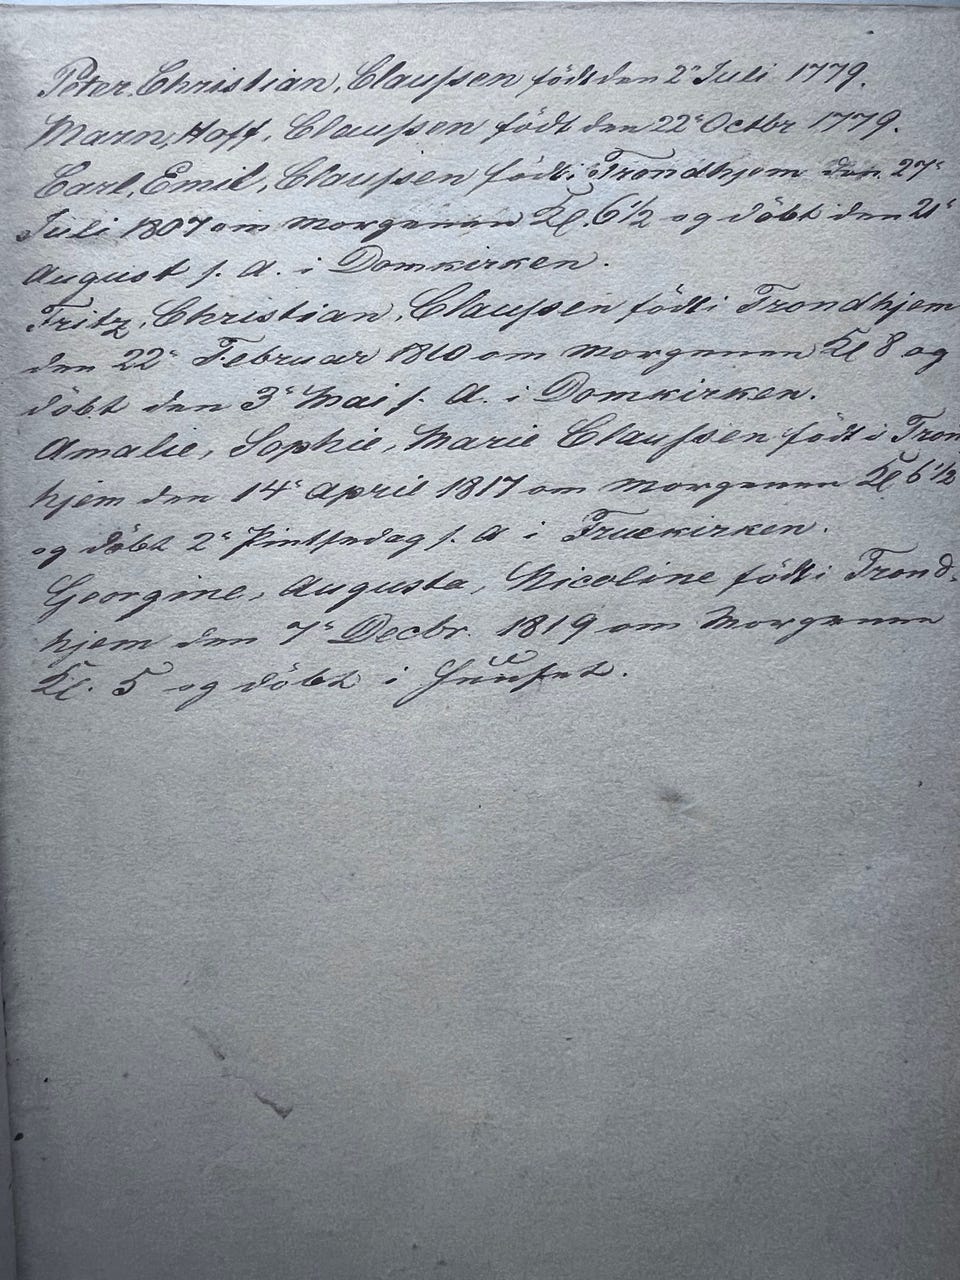 Peter, Christian, Claussen, födt den 2de Juli 1779.
Maren, Hoff, Claussen födt den 22de Octbr 1779.
Carl, Emil, Claussen födt i Trondhjem den 27de
Juli 1807 om Morgenen Kl. 6½ og döbt den 21de
August s. A. i Domkirken.
Fritz, Christian, Claussen födt i Trondhjem
den 22de Februar 1810 om Morgenen Kl 8 og
döbt den 3de Mai s. A. i Domkirken.
Amalie, Sophie, Marie Claussen födt i Tron
hjem den 14de April 1817 om Morgenen Kl 6½
og döbt 2de Pintsedag s. A i Fruekirken.
Georgine, Augusta, Nicoline födt i Trond-
hjem den 7de Decbr. 1819 om Morgenen
Kl. 5 og döbt i Huuset.